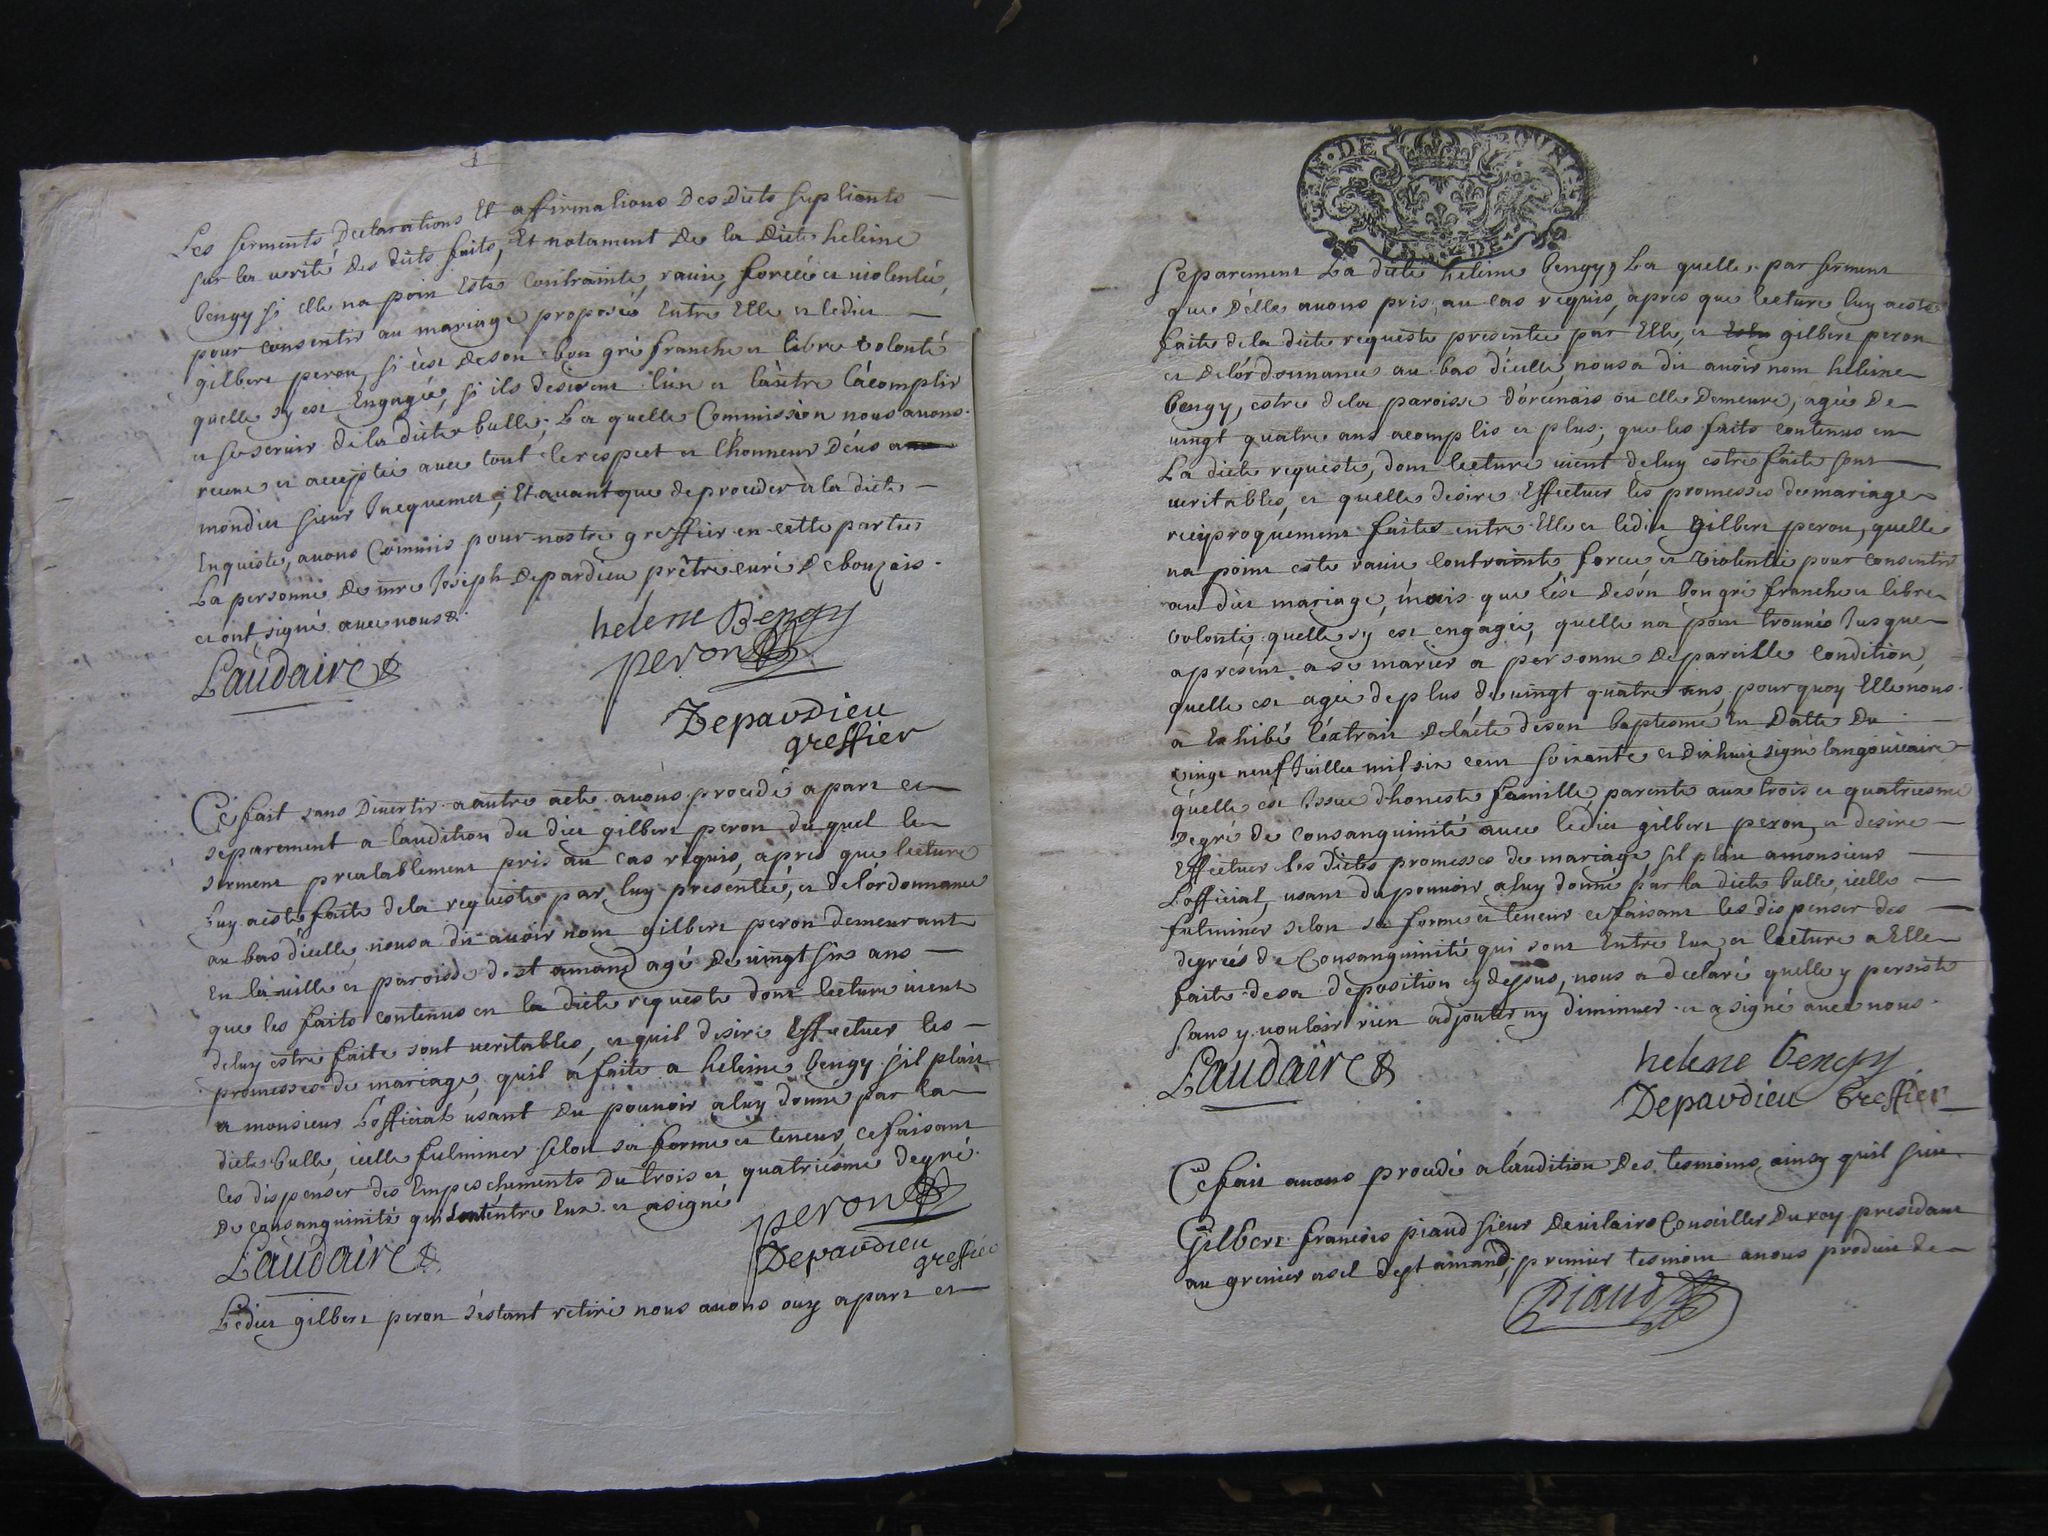 Les serments declarations Et affirmations Des Dicts suplients
sur les verité Des dicts faits, Et notament De la Dicte heleine
bengy si elle na poin Este Contrainte, ravie, forcée et violentée,
pour consentir au mariage proposés Entre Elle et ledict
gilbert peron, si cest de son bon gré franche et libre volonté
quelle sy est Engagée, si ils desirent lún et láutre Lácomplir
et se servir de la dicte bulle; La quelle Commission nous avons
receue et acceptée avec tout le respect et lhonneur Déus a
mondict sieur Jacquemet; Et avant que de proceder a la dicte
Enqueste, avons Commis pour nostre greffier en cette partie
La personne De mre Joseph Depardieu prêtre curé De bouzais.
et ont signé avec nous &.
helene Bengy
peron
Laudaire
Depardieu
greffier
Ce fait sans Divertir a autre acte avons procedé apart et
separement a laudition du dict gilbert peron du quel le
serment prealablement pris au cas requis, apres que lecture
Luy a esté faite dela requeste par luy presentée, et de lórdonnance
au bas dícelle, nous a dit avoir nom gilbert peron demeurant
En la ville et paroisse de st amand agé De vingt six ans
que les faits contenus en la dicte requeste dont lecture vient
deluy estre faite sont veritables, et quil desire Effectuer les
promesses de mariage, quil a faite a heleine bengy, sil plait
a monsieur Lofficial usant Du pouvoir aluy donné par la
dicte bulle, icelle fulminer selon sa forme et teneur, ce faisant
les dispenser des Empeschements Du trois et quatriesme degré
De consanguinité qui sont éntre Eux et a signé
peron
Laudaire
Depardieu
greffier
Ledict gilbert peron sestant retiré nous avons ouy apart et
GEN. DE BOURGES
separement La dicte heleine bengy, La quelle par serment
que Délle avons pris, au cas requis, apres que lecture luy a esté
faite dela dicte requeste presentée par Elle, et gilbert peron
et Delórdonnance au bas dícelle, nous a dit avoir nom heleine
bengy, estre dela paroisse dórcenais ou elle Demeure, agée De
vingt quatre ans acomplis et plus; que les faits contenus en
La dicte requeste, dont lecture vient deluy estre faite sont
veritables, et quelle desire Effectuer les promesses de mariage
reciproquement faites entre Elle et ledict gilbert peron, quelle
na point esté ravie contrainte forcée et violentée pour consentir
au dict mariage, mais que cést De són bon gré franche et libre
volonté quelle sy est engagée, quelle na point trouvé Jusque
apresent a se marier a personne De pareille condition,
quelle est agée de plus de vingt quatre ans pourquoy Elle nous
a Exhibé léxtrait Delácte de son baptesme En Datte Du
vingt neuf Juillet mil six cent soixante et dixhuit signé
quelle est Issue d'honeste famille, parente aux trois et quatriesme
Degré de consanguinité avec ledict gilbert peron, et desire
Effectuer les dictes promesses de mariage, sil plait amonsieur
Lofficial, usant du pouvoir aluy donné par la dicte bulle, icelle
fulminer selon sa forme et teneur ce faisant les dispenser des
degrés de Consanguinité qui sont Entre Eux, et lecture a Elle
faite de sa deposition cy dessus, nous a declaré quelle y persiste
sans y vouloir rien adjouter ny diminuer et a signé avec nous.
helene bengy
Laudaire
Depardieu Greffier
Ce fait avons procedé a láudition Des tesmoins, ainsy quil suit
Gilbert francois piaud sieur De vilaire Conseiller Du roy president
au grenier a sel de st amand, premier tesmoin anous produit de
Piaud